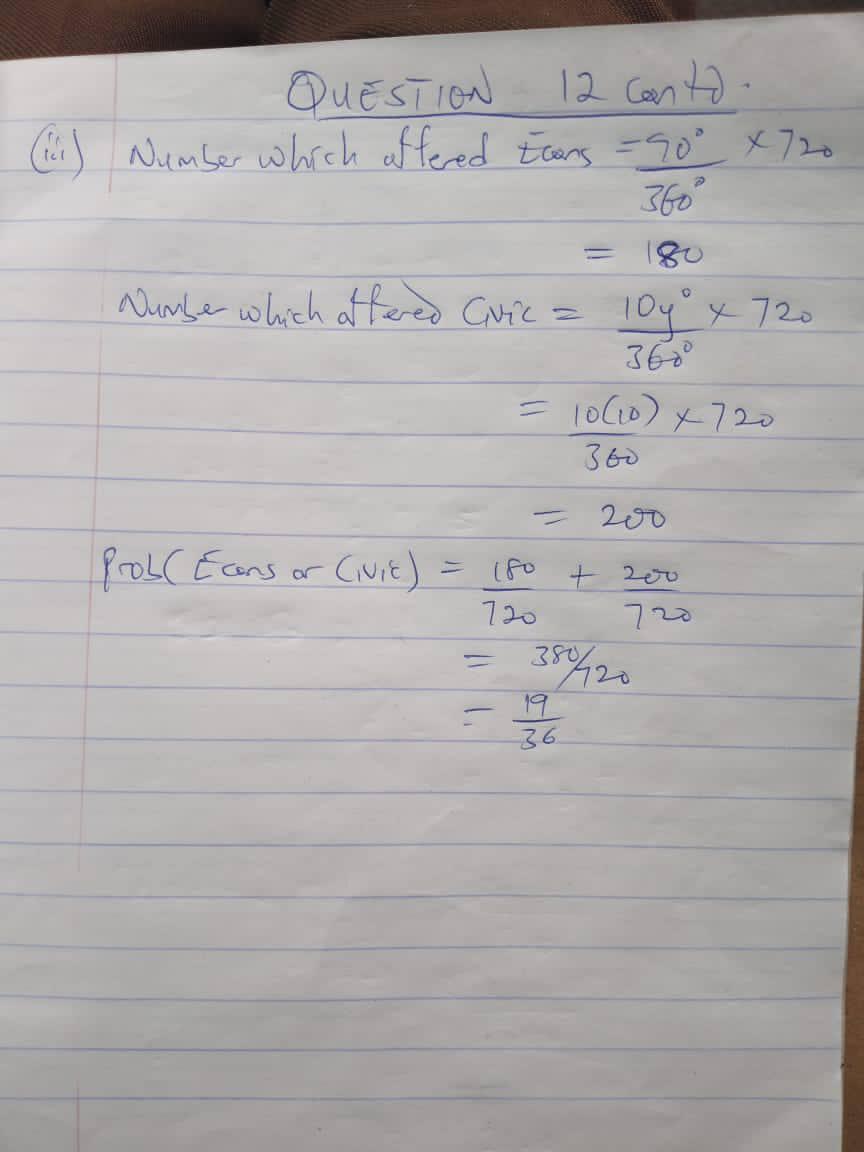 QUESTION 12 Contd.
(iii) Number which offered Econs = 90° × 720
360°
= 180
Number which offered Civic = 10y° × 720
360°
= 10(10) × 720
360
= 200
Prob( Econs or Civic) = 180 + 200
720 720
= 380/720
= 19
36